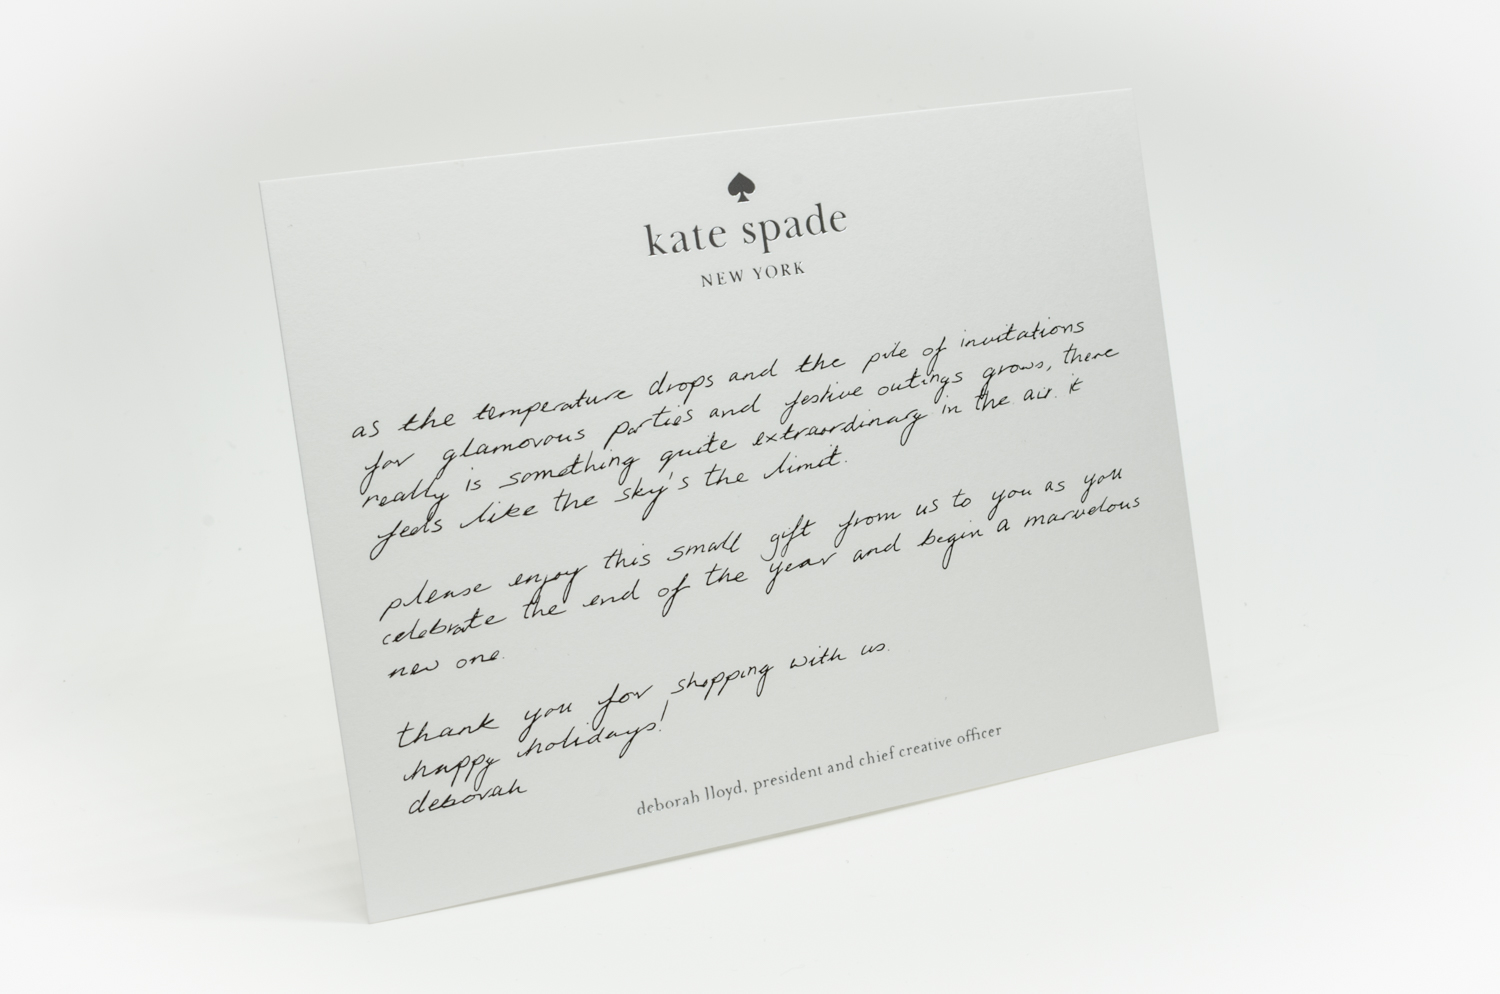 kate spade
NEW YORK
as the temperature drops and the pile of invitations
for glamorous parties and festive outings grows, there
really is something quite extraordinary in the air. it
feels like the sky's the limit.
please enjoy this small gift from us to you as you
celebrate the end of the year and begin a marvelous
new one.
thank you for shopping with us.
happy holidays!
deborah
deborah lloyd, president and chief creative officer